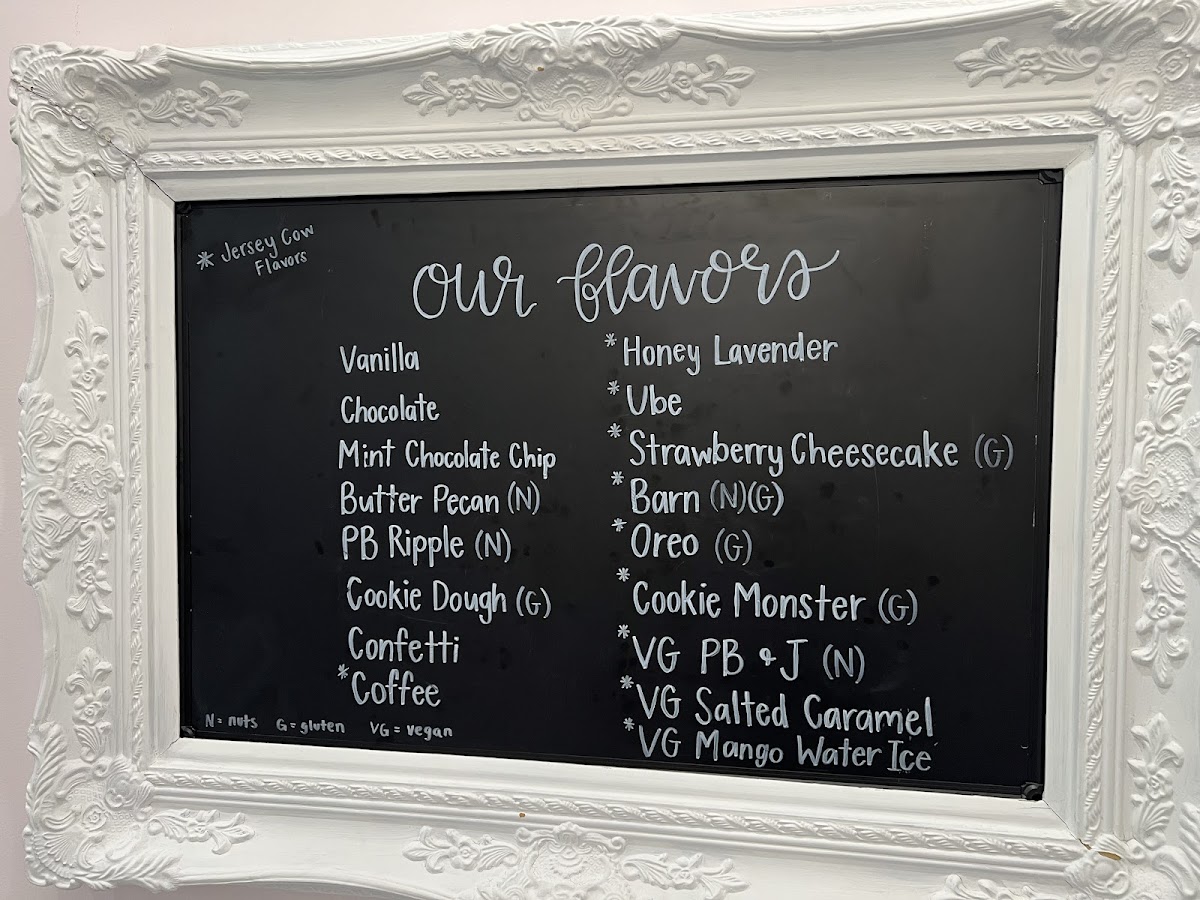 * Jersey Cow
Flavors
our flavors
Vanilla
Chocolate
Mint Chocolate Chip
Butter Pecan (N)
PB Ripple (N)
Cookie Dough (G)
Confetti
*Coffee
N = nuts G = gluten VG = vegan
*Honey Lavender
*Ube
*Strawberry Cheesecake (G)
*Barn (N)(G)
*Oreo (G)
*Cookie Monster (G)
*VG PB & J (N)
*VG Salted Caramel
*VG Mango Water Ice